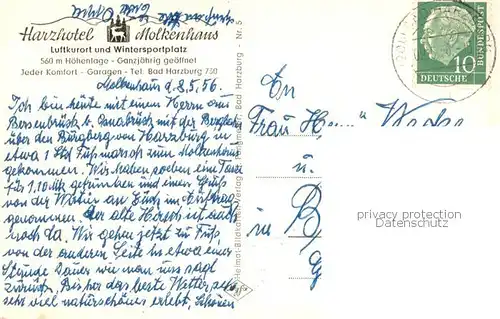 Harzhotel Molkenhaus
Luftkurort und Wintersportplatz
560 m Höhenlage - Ganzjährig geöffnet
Jeder Komfort - Garagen - Tel. Bad Harzburg 750
Molkenhaus d. 8.5.56.–
Ich bin heute mit einem Herrn aus
Bersenbrück b. Osnabrück mit der Bergbahn
über den Burgberg von Harzburg in
etwa 1 Std Fußmarsch zum Molkenhaus
gekommen. Wir haben soeben eine Tasse
für 1.10 Mk getrunken und einen Gruß
von der Wirtin an Euch im Auftrag
genommen. Der alte Hirsch ist auch
noch da. Wir gehen jetzt zu Fuß
von der anderen Seite in etwa einer
Stunde Dauer wie man uns sagt
zurück. Bisher das beste Wetter
sehr viel naturschönes erlebt. Schönen
Bad Harzburg - Nr. 5
An
Frau H
u.
in B
10
DEUTSCHE
BUNDESPOST
privacy protection
Datenschutz